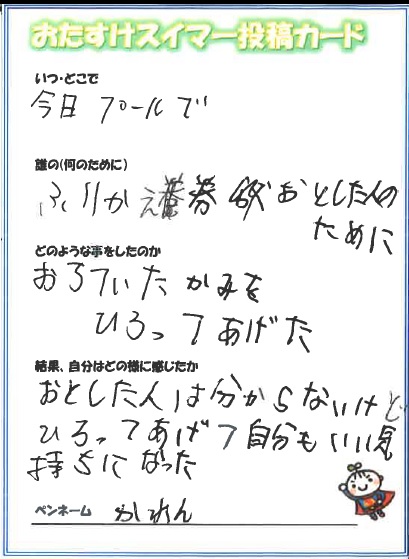 おたすけスイマー投稿カード
いつ・どこで
今日 プールで
誰の(何のために)
ふりかえ券 おとした人の
ために
どのような事をしたのか
おちていた かみを
ひろってあげた
結果、自分はどの様に感じたか
おとした人は分からないけど
ひろってあげて自分もいい気
持ちになった
ペンネーム かれん